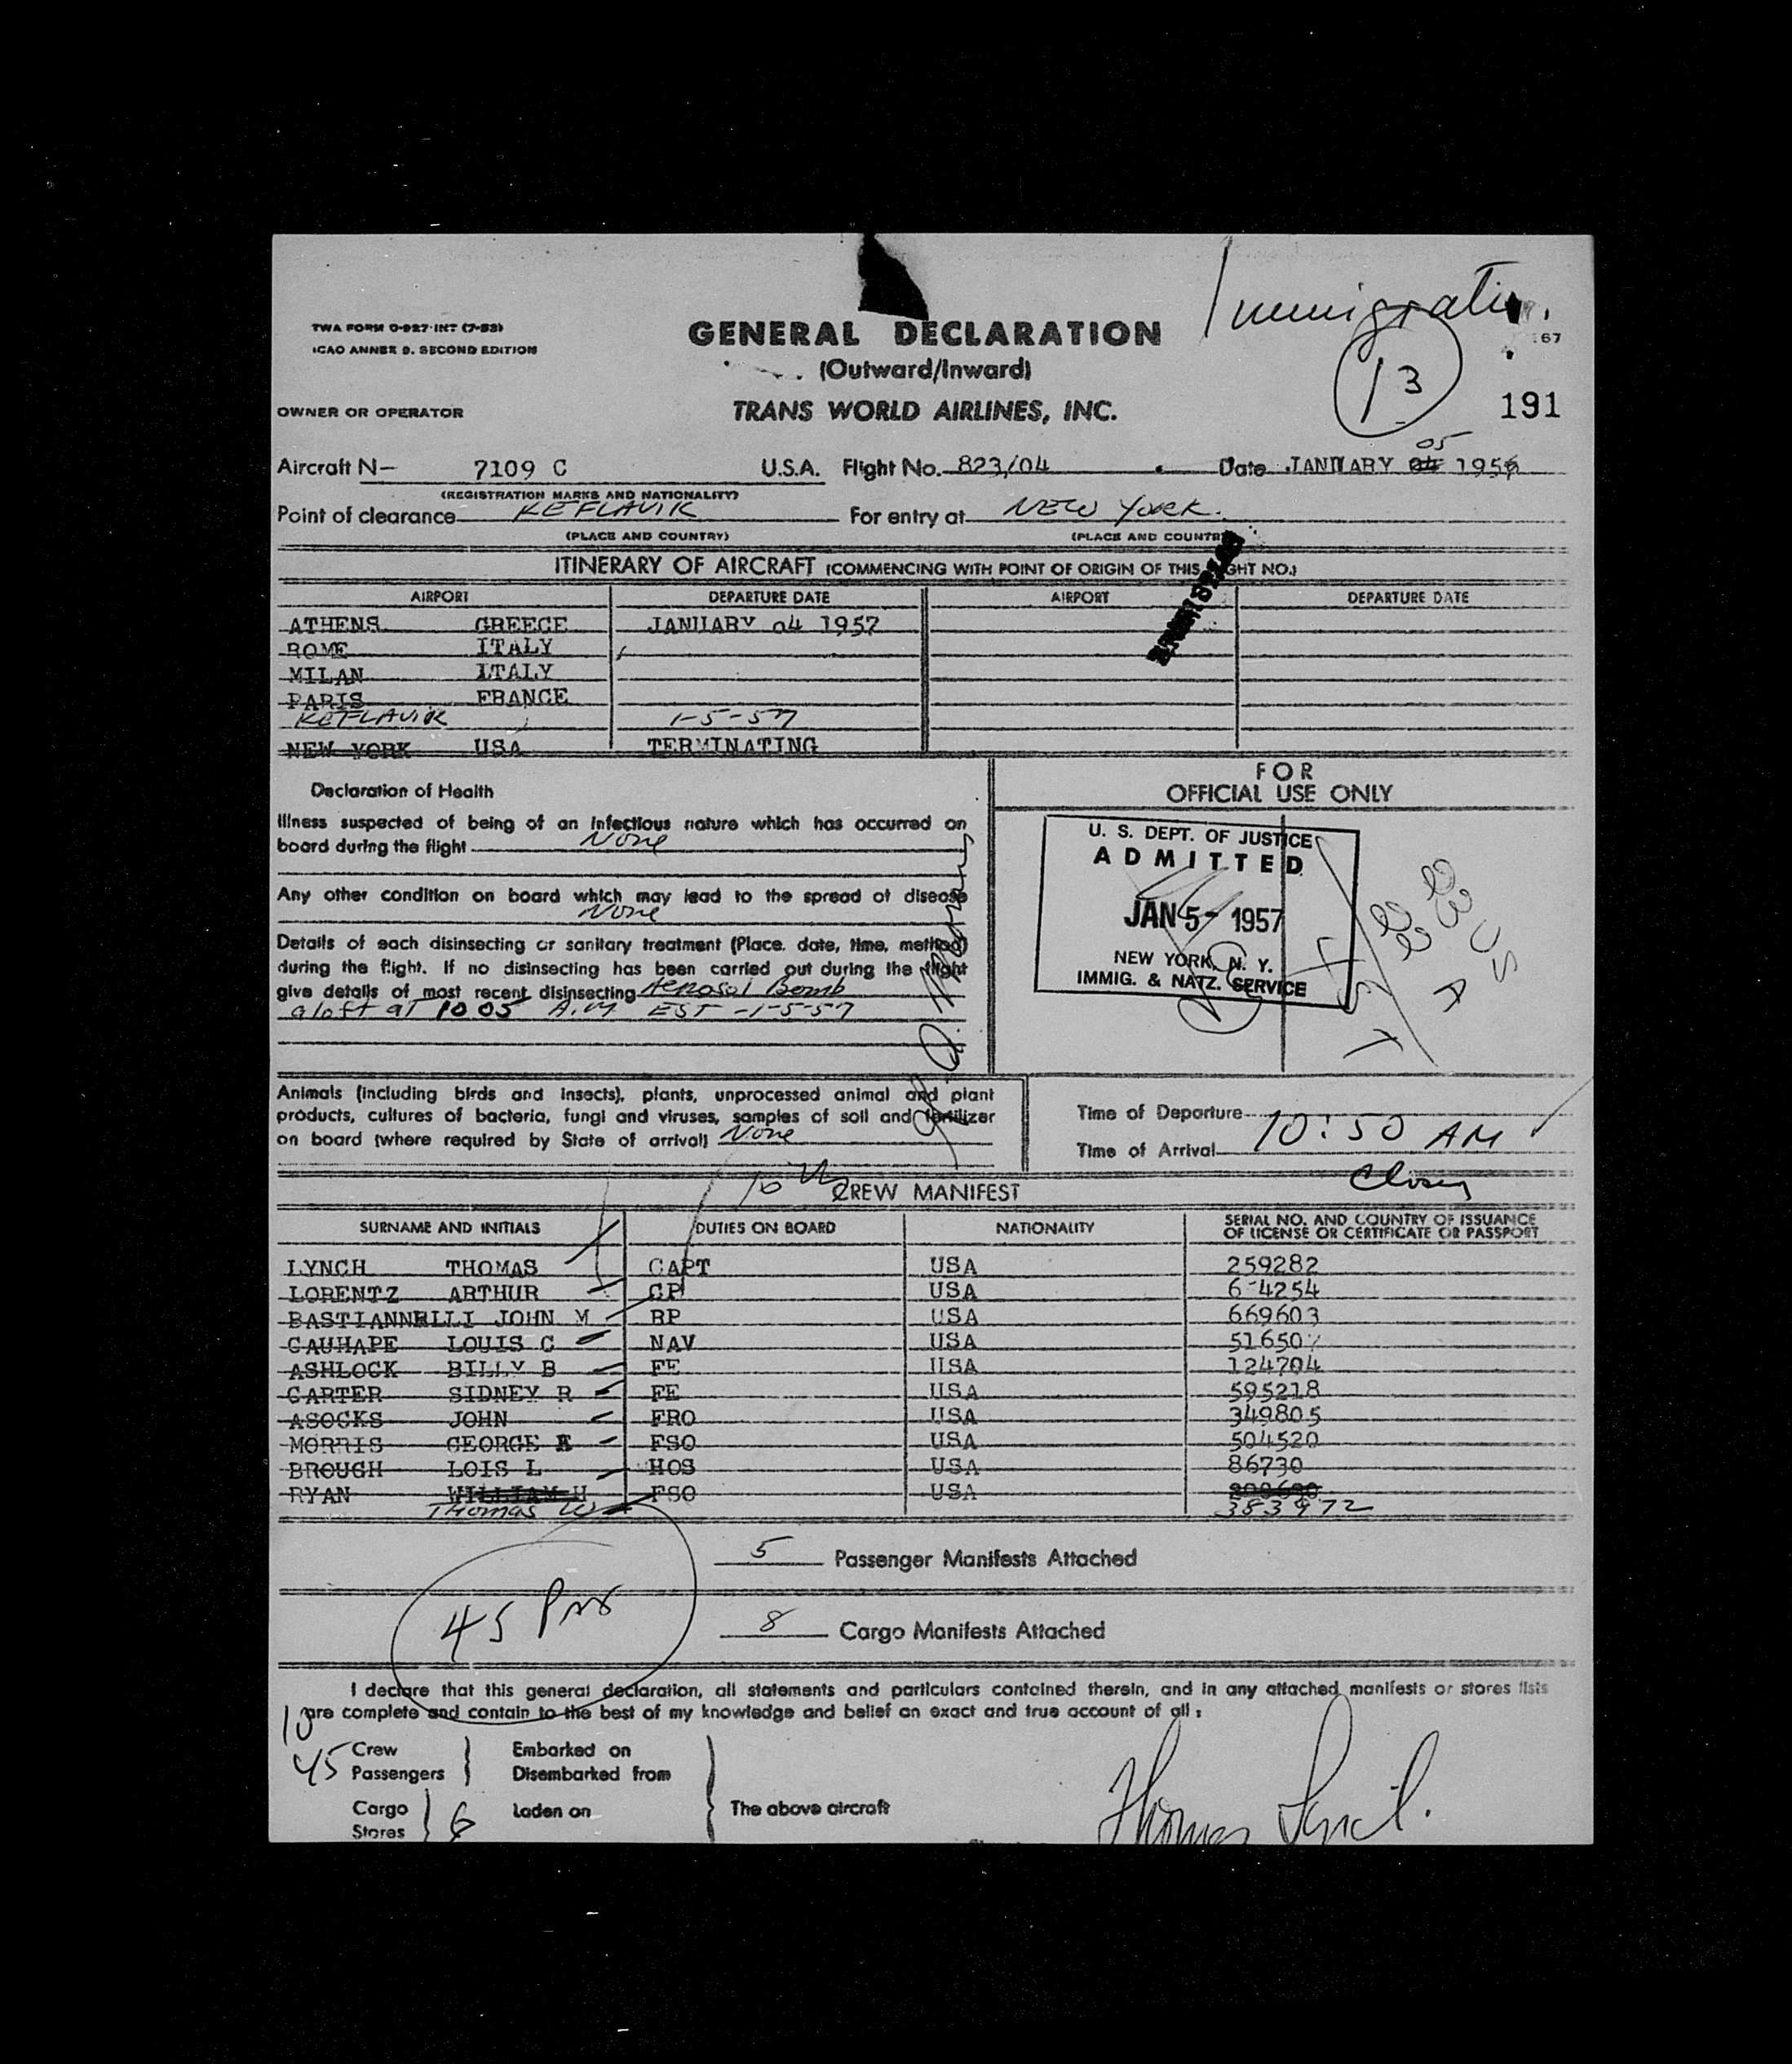 Immigration.
TWA FORM O-927-INT (7-53)
ICAO ANNEX 9. SECOND EDITION
GENERAL DECLARATION
(Outward/Inward)
67
13
191
OWNER OR OPERATOR
TRANS WORLD AIRLINES, INC.
05
Aircraft N- 7109 C U.S.A. Flight No. 823/04 Date JANUARY 04 1956
(REGISTRATION MARKS AND NATIONALITY)
Point of clearance KEFLAVIK For entry at NEW YORK.
(PLACE AND COUNTRY) (PLACE AND COUNTRY)
ITINERARY OF AIRCRAFT (COMMENCING WITH POINT OF ORIGIN OF THIS FLIGHT NO.)
AIRPORT DEPARTURE DATE AIRPORT DEPARTURE DATE
ATHENS GREECE JANUARY 04 1957
ROME ITALY
MILAN ITALY
PARIS FRANCE
KEFLAVIK 1-5-57
NEW YORK USA TERMINATING
FOR
OFFICIAL USE ONLY
Declaration of Health
Illness suspected of being of an infectious nature which has occurred on
board during the flight None
Any other condition on board which may lead to the spread of disease
None
Details of each disinsecting or sanitary treatment (Place, date, time, method)
during the flight. If no disinsecting has been carried out during the flight
give details of most recent disinsecting Aerosol Bomb
aloft at 1005 A.M EST -1-5-57
U. S. DEPT. OF JUSTICE
ADMITTED
JAN 5- 1957
NEW YORK, N. Y.
IMMIG. & NATZ. SERVICE
Animals (including birds and insects), plants, unprocessed animal and plant
products, cultures of bacteria, fungi and viruses, samples of soil and fertilizer
on board (where required by State of arrival) None
Time of Departure
10:50 AM
Time of Arrival
CREW MANIFEST
SURNAME AND INITIALS DUTIES ON BOARD NATIONALITY SERIAL NO. AND COUNTRY OF ISSUANCE
OF LICENSE OR CERTIFICATE OR PASSPORT
LYNCH THOMAS CAPT USA 259282
LORENTZ ARTHUR CP USA 6-4254
BASTIANNELLI JOHN M RP USA 669603
CAUHAPE LOUIS C NAV USA 516507
ASHLOCK BILLY B FE USA 124704
CARTER SIDNEY R FE USA 595218
ASOCKS JOHN FRO USA 349805
MORRIS GEORGE E FSO USA 504520
BROUGH LOIS L HOS USA 86730
RYAN WILLIAM H FSO USA
Thomas W 383972
5 Passenger Manifests Attached
45 Pax
8 Cargo Manifests Attached
I declare that this general declaration, all statements and particulars contained therein, and in any attached manifests or stores lists
are complete and contain to the best of my knowledge and belief an exact and true account of all:
10
45
Crew Embarked on
Passengers Disembarked from
Cargo 6 Laden on The above aircraft
Stores
Thomas Lynch.